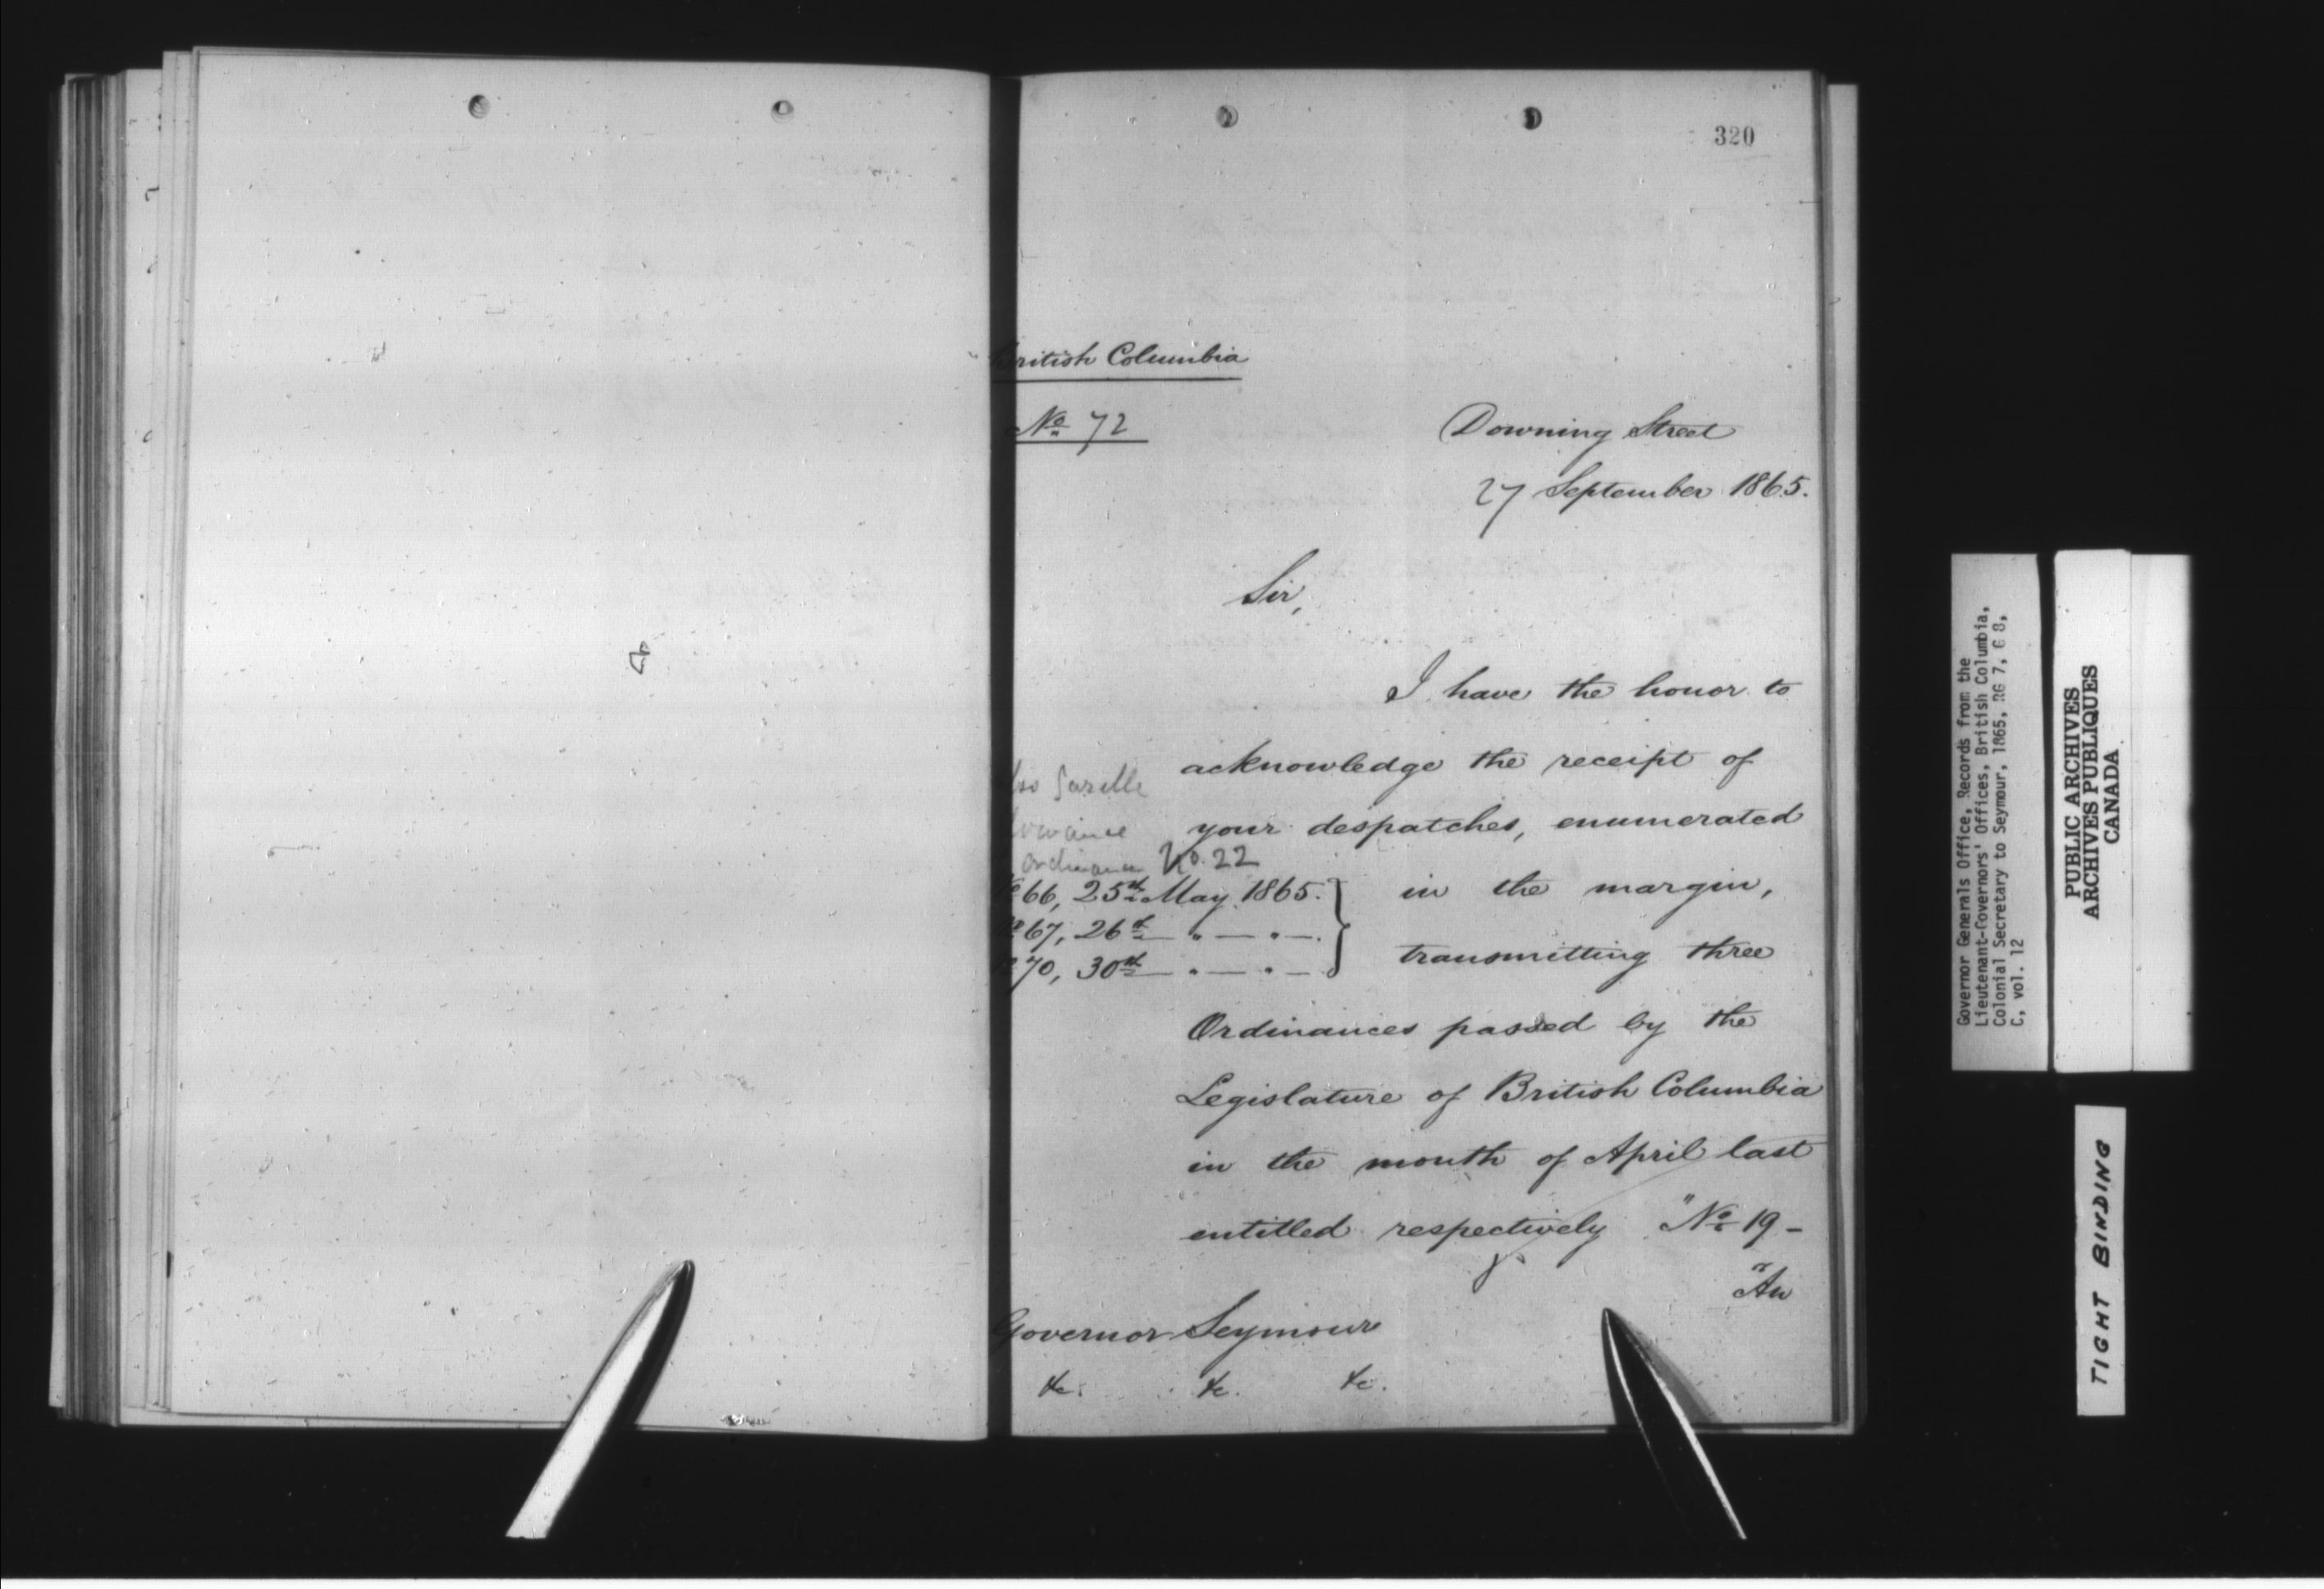 320
British Columbia
No. 72
Downing Street
27 September 1865.
Sir,
I have the honor to
acknowledge the receipt of
your despatches, enumerated
Ordinance No. 22
No. 66, 25th May 1865. } in the margin,
No. 67, 26th " — " — .
No. 70, 30th " — " — } transmitting three
Ordinances passed by the
Legislature of British Columbia
in the month of April last
entitled respectively "No. 19 -
"An
Governor Seymour
&c. &c. &c.
Governor Generals Office, Records from the
Lieutenant-Governors' Offices, British Columbia,
Colonial Secretary to Seymour, 1865, RG 7, G 8,
C, vol. 12
PUBLIC ARCHIVES
ARCHIVES PUBLIQUES
CANADA
TIGHT BINDING